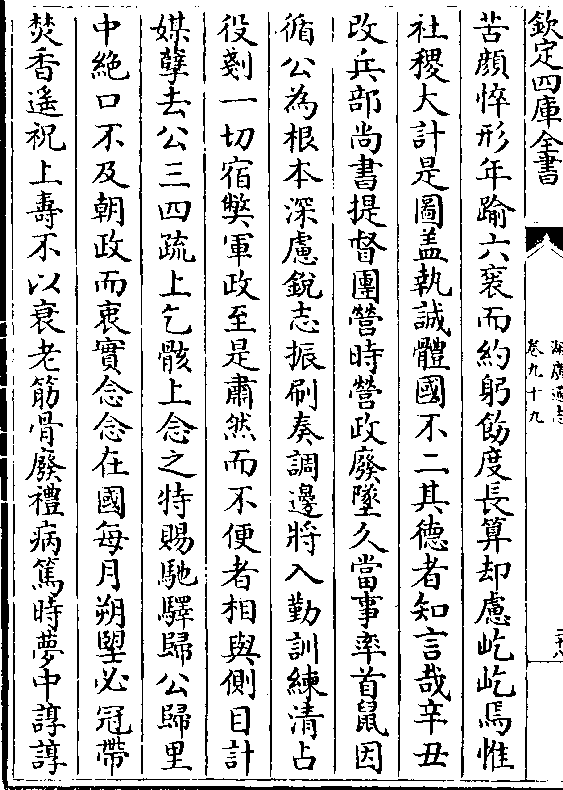 欽定四庫全書
湖廣通志
卷九十九
苦顔悴形年踰六衮而約躬飭度長算却慮屹屹焉惟
社稷大計是圖盖執誠體國不二其德者知言哉辛丑
改兵部尚書提督團營時營政廢墜久當事率首䑕因
循公為根本深慮銳志振刷奏調邊將入勤訓練清占
役剗一切宿獘軍政至是肅然而不便者相與側目計
媒孽去公三四疏上乞骸上念之特賜馳驛歸公歸里
中絶口不及朝政而衷實念念在國每月朔朢必冠帶
焚香遥祝上壽不以衰老筋骨廢禮病篤時夢中諄諄